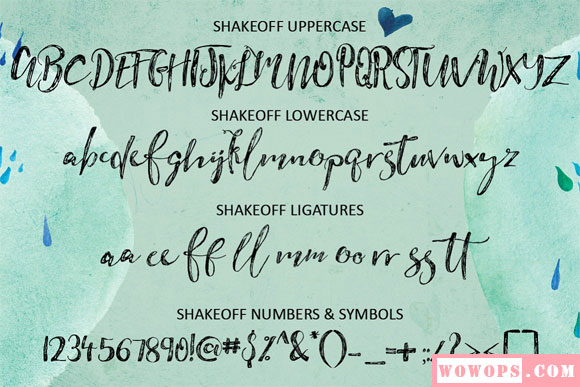 SHAKEOFF UPPERCASE
ABCDEFGHIJKLMNOPQRSTUVWXYZ
SHAKEOFF LOWERCASE
abcdefghijklmnopqrstuvwxyz
SHAKEOFF LIGATURES
aa ee ff ll mm oo rr ss tt
SHAKEOFF NUMBERS & SYMBOLS
1234567890!@#$%^&*()-_=+;:/?><[]
WOWOPS.COM